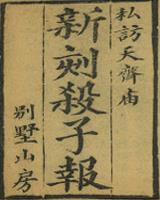 私訪天齊庙
新刻殺子報
別墅山房